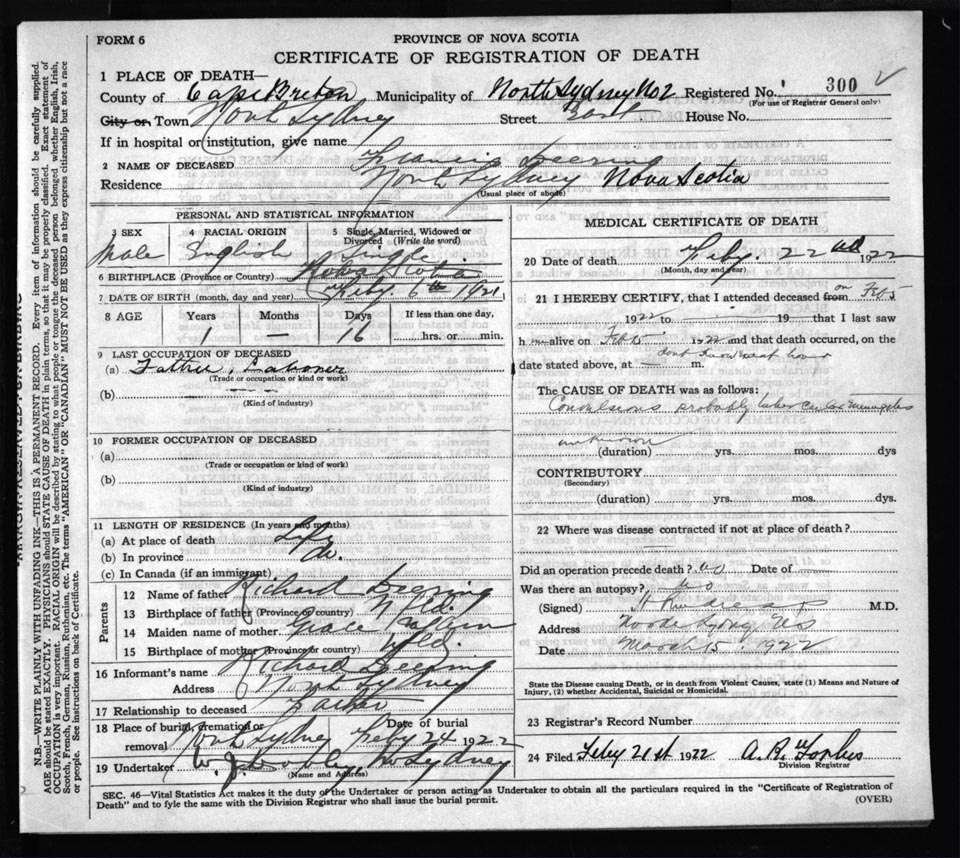 FORM 6
PROVINCE OF NOVA SCOTIA
CERTIFICATE OF REGISTRATION OF DEATH
1 PLACE OF DEATH—
County of Cape Breton Municipality of North Sydney No2 Registered No. 300
(For use of Registrar General only)
City or Town North Sydney Street East House No.
If in hospital or institution, give name
2 NAME OF DECEASED Francis Deering
Residence North Sydney Nova Scotia
(Usual place of abode)
PERSONAL AND STATISTICAL INFORMATION
3 SEX 4 RACIAL ORIGIN 5 Single, Married, Widowed or Divorced (Write the word)
Male English Single
6 BIRTHPLACE (Province or Country) Nova Scotia
7 DATE OF BIRTH (month, day and year) Feby 6th 1921
8 AGE Years Months Days If less than one day,
1 — 16 hrs. or min.
9 LAST OCCUPATION OF DECEASED
(a) Father, Laborer
(Trade or occupation or kind of work)
(b)
(Kind of industry)
10 FORMER OCCUPATION OF DECEASED
(a)
(Trade or occupation or kind of work)
(b)
(Kind of industry)
11 LENGTH OF RESIDENCE (In years and months)
(a) At place of death Life
(b) In province do.
(c) In Canada (if an immigrant)
Parents
12 Name of father Richard Deering
13 Birthplace of father (Province or country) Nfld.
14 Maiden name of mother Grace
15 Birthplace of mother (Province or country) Nfld.
16 Informant's name Richard Deering
Address North Sydney
17 Relationship to deceased Father
18 Place of burial, cremation or removal North Sydney Date of burial Feby 24 1922
19 Undertaker W. J. Dooley, No Sydney
(Name and Address)
MEDICAL CERTIFICATE OF DEATH
20 Date of death Feby. 22nd 1922
(Month, day and year)
21 I HEREBY CERTIFY, that I attended deceased from on Feb 5
1922 to 19 that I last saw
h alive on Feb 5 1922 and that death occurred, on the
dont know exact hour
date stated above, at — m.
The CAUSE OF DEATH was as follows:
Convulsions probably tubercular Meningitis
unknown
(duration) yrs. mos. dys
CONTRIBUTORY
(Secondary)
(duration) yrs. mos. dys.
22 Where was disease contracted if not at place of death?
Did an operation precede death? no Date of
Was there an autopsy? no
(Signed) M.D.
Address North Sydney NS
Date March 15. 1922
State the Disease causing Death, or in death from Violent Causes, state (1) Means and Nature of Injury, (2) whether Accidental, Suicidal or Homicidal.
23 Registrar's Record Number
24 Filed Feby 21st 1922 A. R. Forbes
Division Registrar
SEC. 46—Vital Statistics Act makes it duty of the Undertaker or person acting as Undertaker to obtain all the particulars required in the "Certificate of Registration of
Death" and to fyle the same with the Division Registrar who shall issue the burial permit.
(OVER)
N.B.—WRITE PLAINLY WITH UNFADING INK—THIS IS A PERMANENT RECORD. Every item of information should be carefully supplied.
AGE should be stated EXACTLY. PHYSICIANS should STATE CAUSE OF DEATH in plain terms, so that it may be properly classified. Exact statement of
OCCUPATION is very important. RACIAL ORIGIN will be described by stating to what people or tongue the deceased person belonged whether English, Irish,
Scotch, French, German, Russian, Ruthenian, etc. The terms "AMERICAN" OR "CANADIAN" MUST NOT BE USED as they express citizenship but not a race
or people. See instructions on back of Certificate.